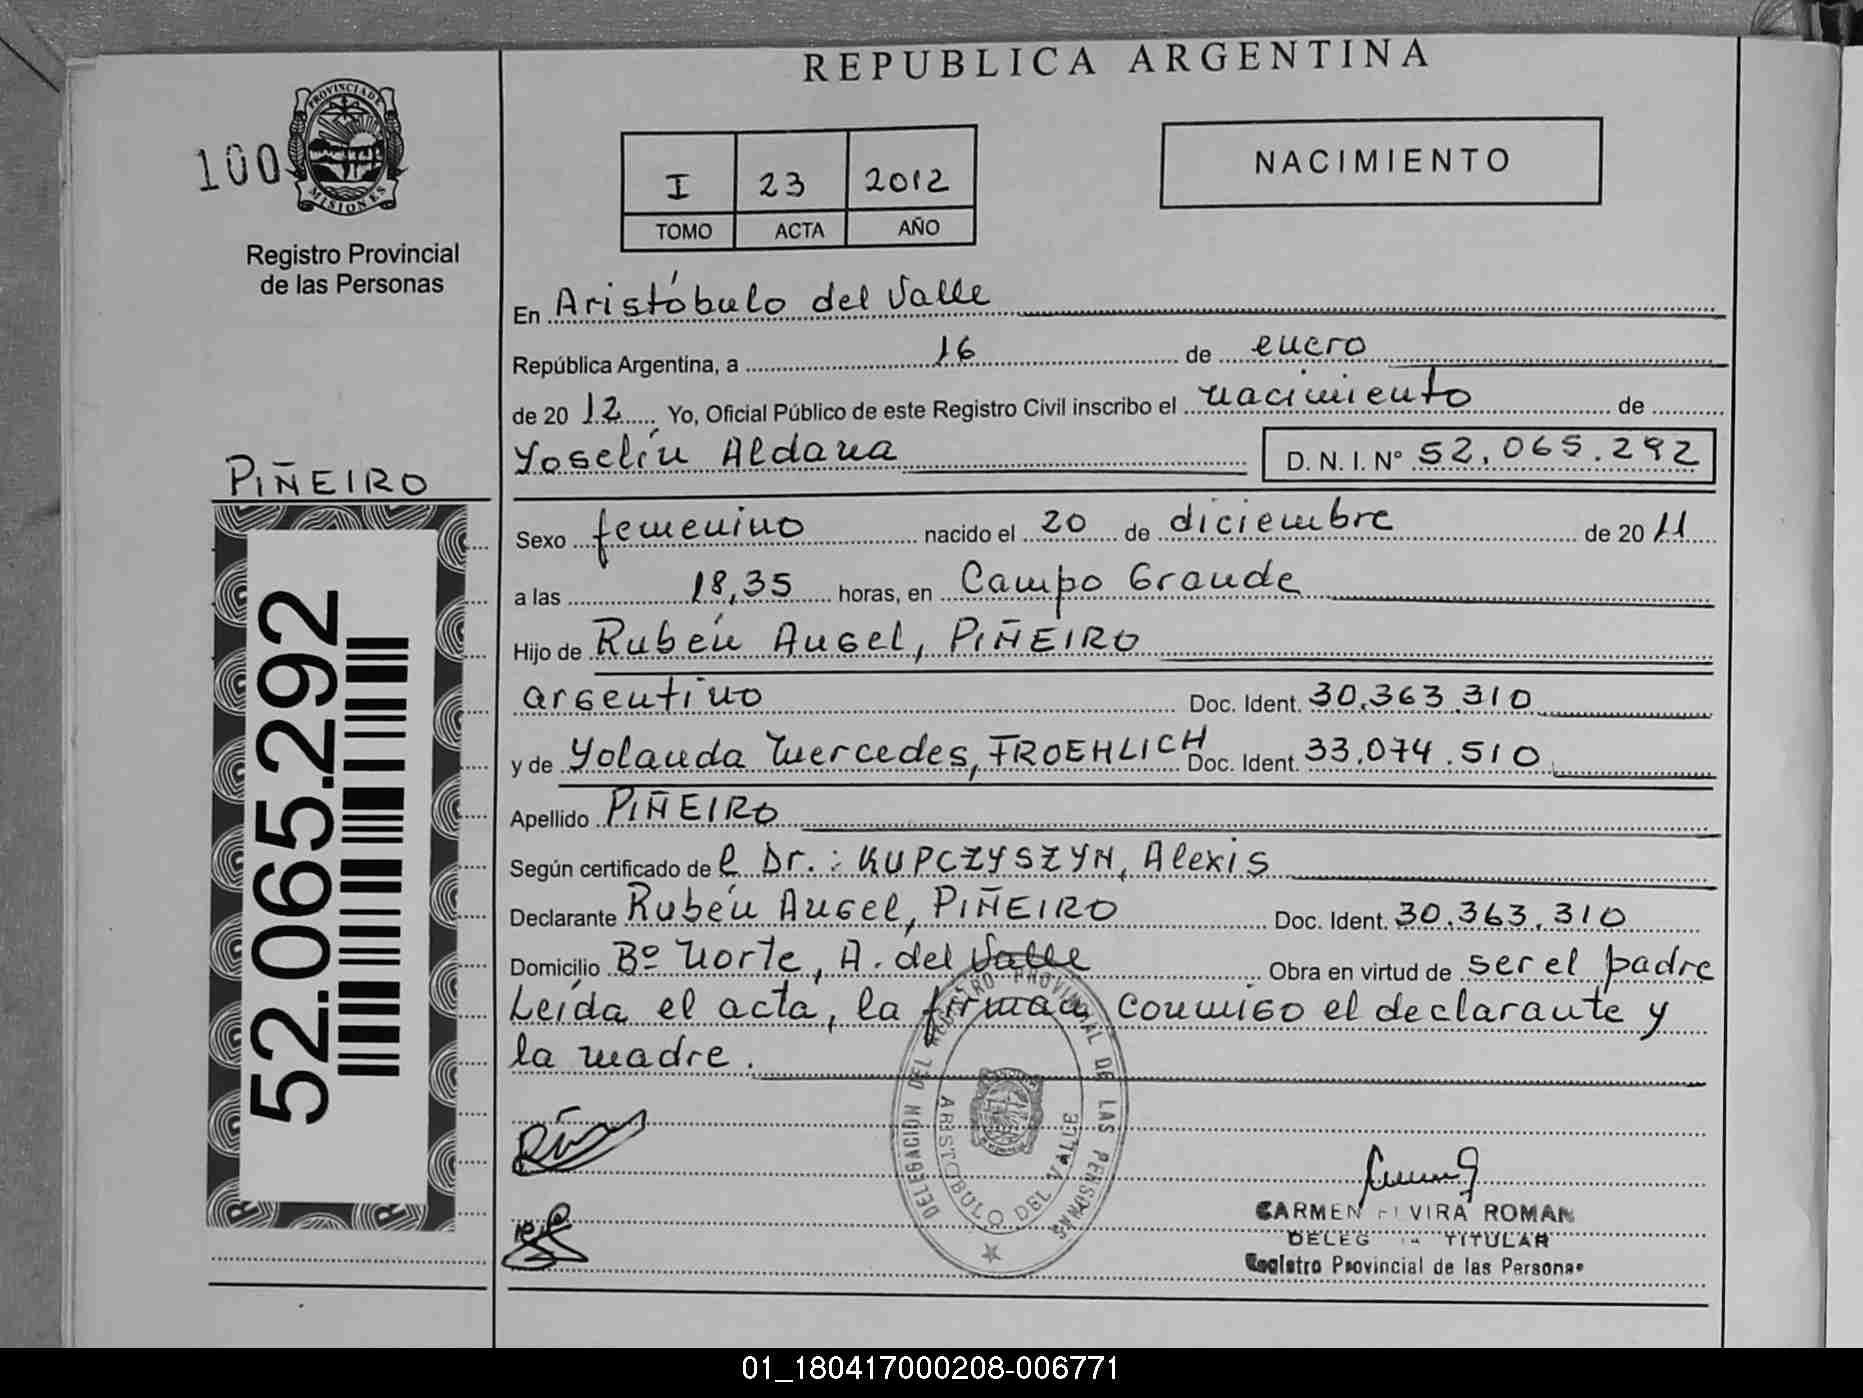 REPUBLICA ARGENTINA
PROVINCIA DE
MISIONES
100
Registro Provincial
de las Personas
I 23 2012
TOMO ACTA AÑO
NACIMIENTO
En Aristóbulo del Valle
República Argentina, a 16 de enero
de 20 12 Yo, Oficial Público de este Registro Civil inscribo el nacimiento de
Yoselín Aldana D. N. I. Nº 52.065.292
PIÑEIRO
Sexo femenino nacido el 20 de diciembre de 20 11
a las 18,35 horas, en Campo Grande
Hijo de Rubén Angel, PIÑEIRO
argentino Doc. Ident. 30.363.310
y de Yolanda Mercedes, FROEHLICH Doc. Ident. 33.074.510
Apellido PIÑEIRO
Según certificado de l Dr.: KUPCZYSZYN, Alexis
Declarante Rubén Angel, PIÑEIRO Doc. Ident. 30.363.310
Domicilio Bº Norte, A. del Valle Obra en virtud de ser el padre
Leída el acta, la firman conmigo el declarante y
la madre.
52.065.292
DELEGACION DEL REGISTRO PROVINCIAL DE LAS PERSONAS
ARISTOBULO DEL VALLE
CARMEN ELVIRA ROMAN
TITULAR
Registro Provincial de las Personas
01_180417000208-006771